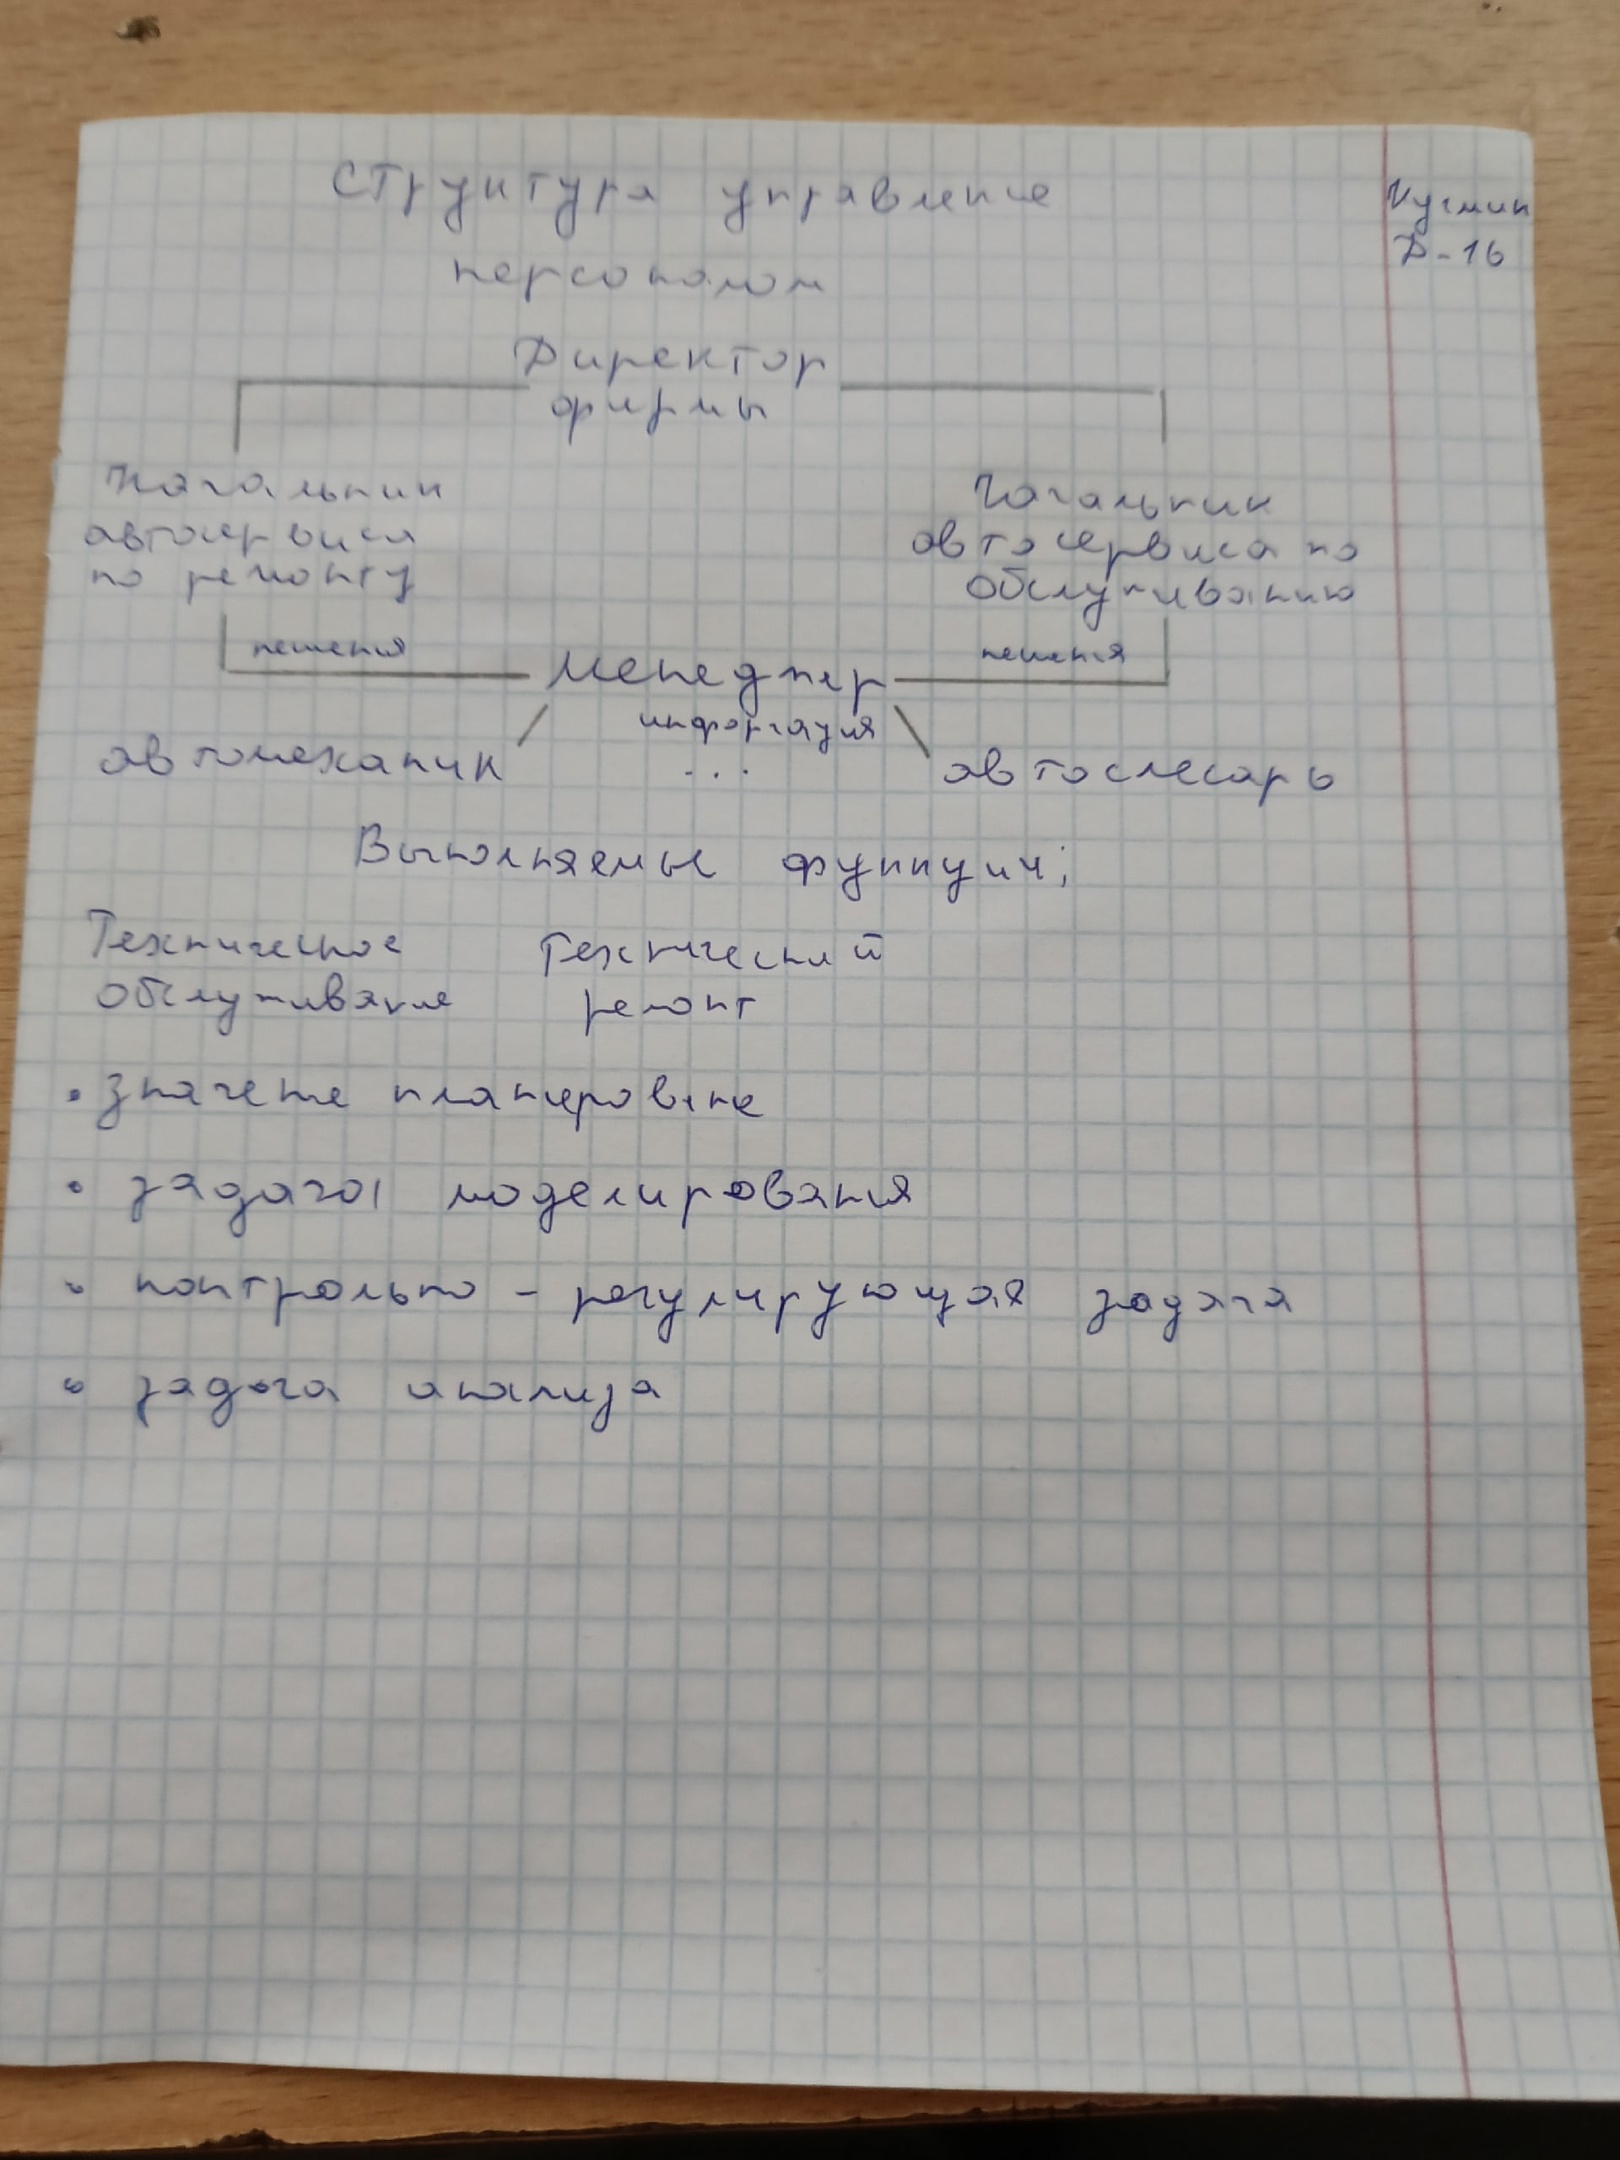 Структура управление
персоналом
Кузмин
Д-16
Директор
фирмы
Начальник
автосервиса
по ремонту
Начальник
автосервиса по
обслуживанию
решения
Менеджер
решения
информация
автомеханик
...
автослесарь
Выполняемые функции:
Техническое
обслуживание
Технический
ремонт
• значение планирование
• задача моделирования
• контрольно - регулирующая задача
• задача анализа